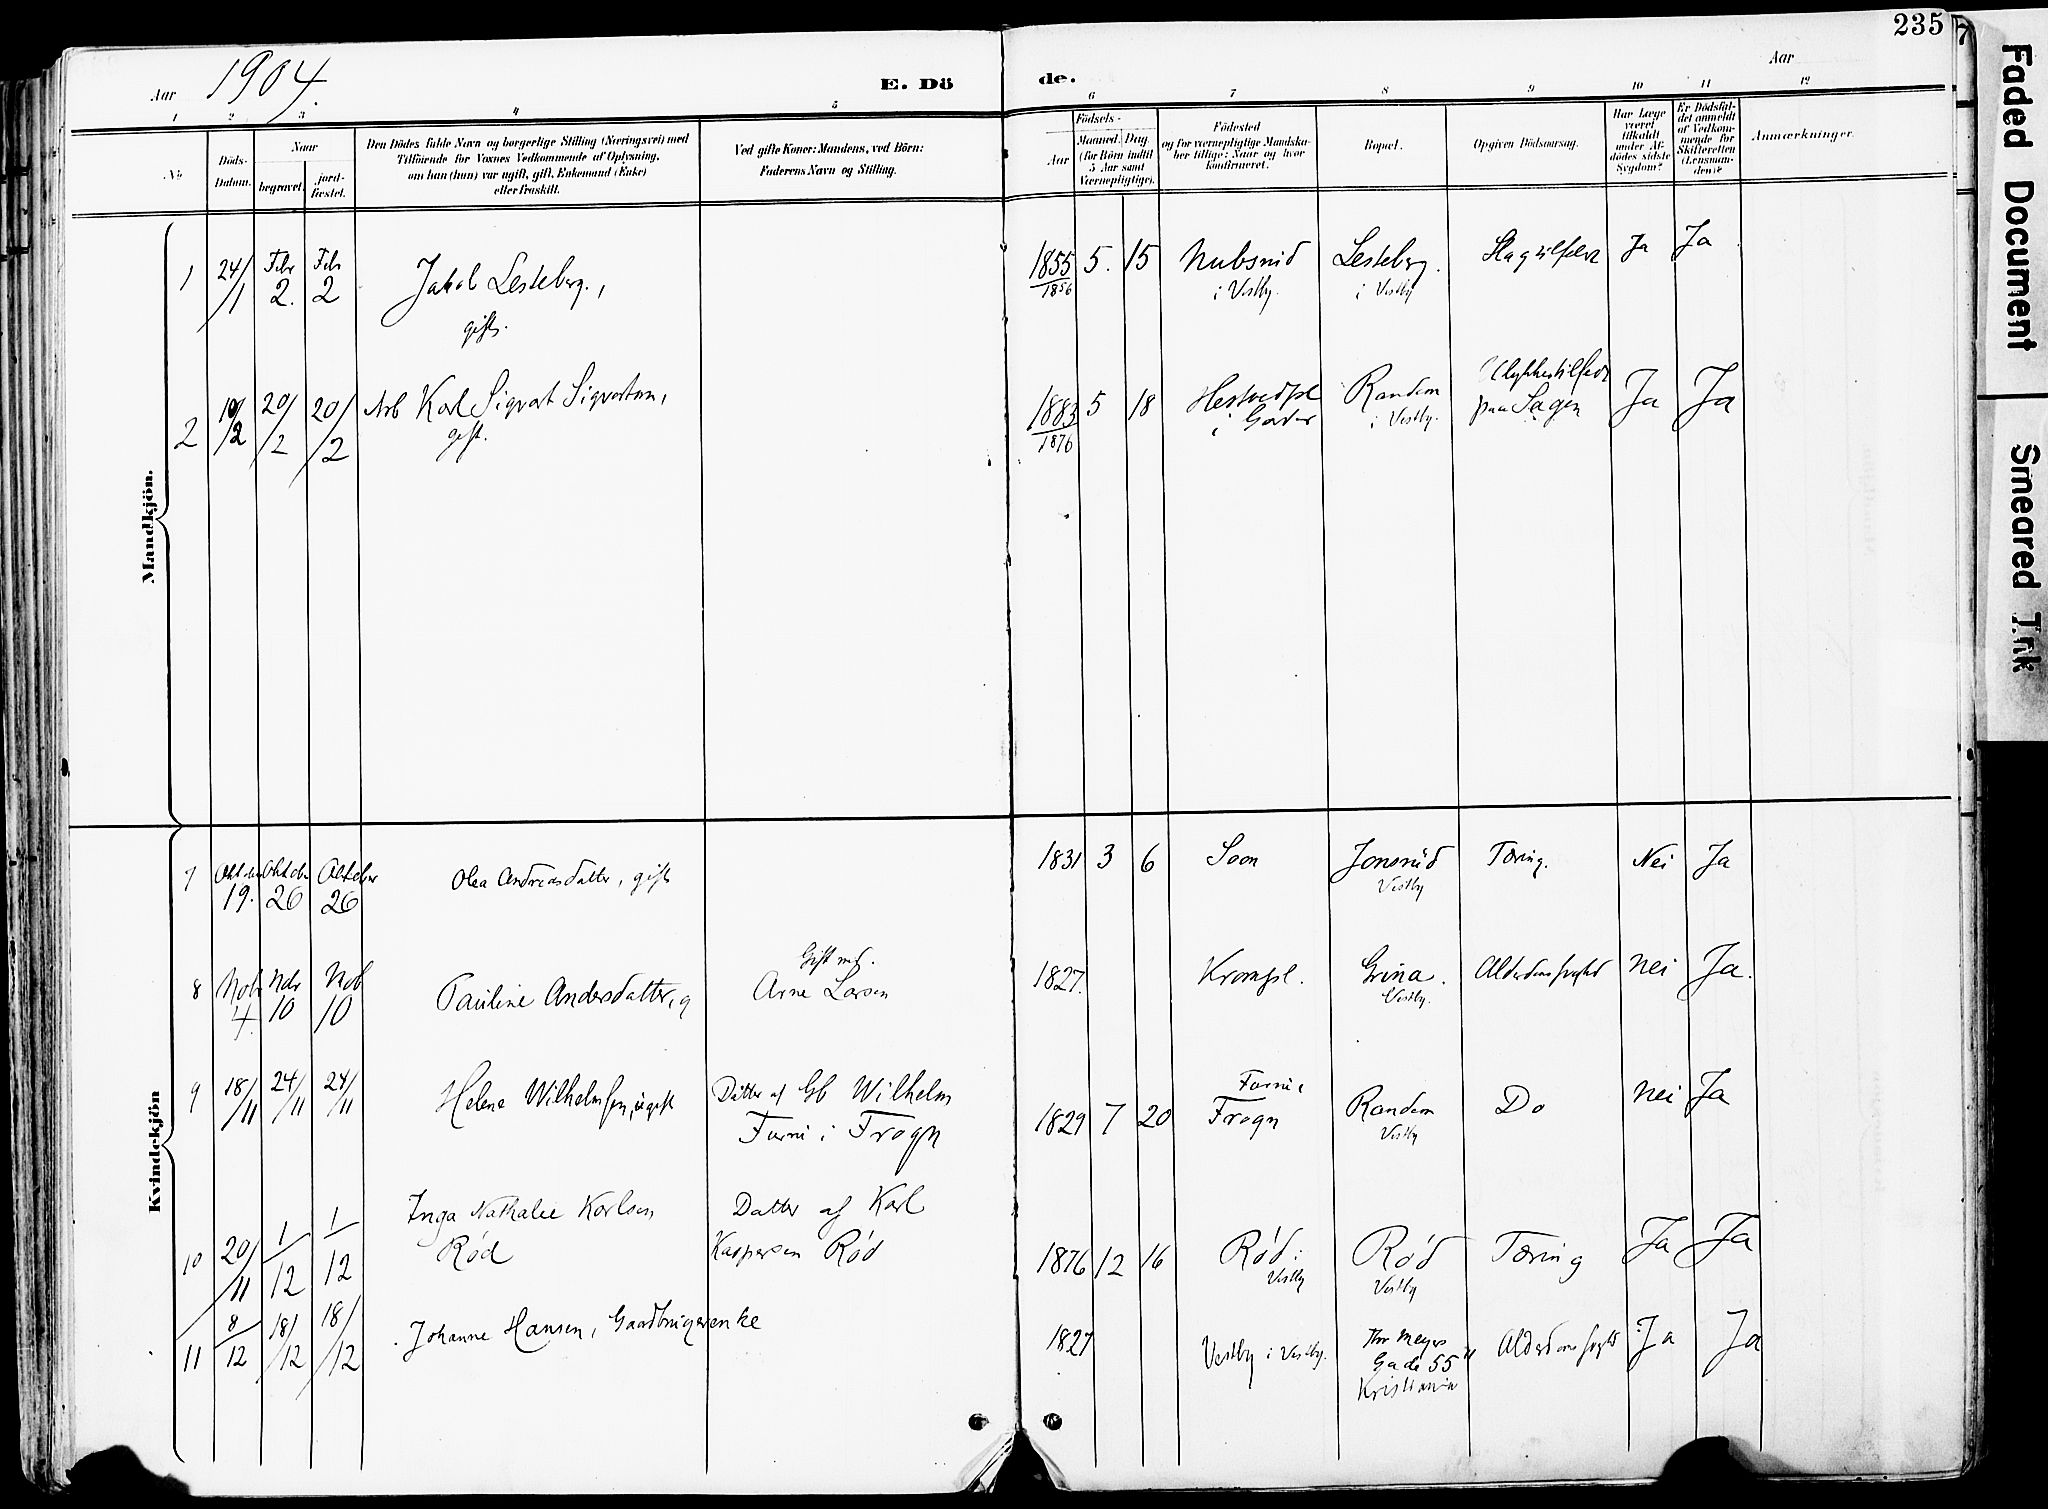 235
Aar 1904.
E. Dö
de.
Aar
1 2 3 4 5 6 7 8 9 10 11 12
No
Döds-
Datum.
Naar
begravet.
jord-
fæstet.
Den Dödes fulde Navn og borgerlige Stilling (Næringsvei) med
Tilföiende for Voxnes Vedkommende af Oplysning,
om han (hun) var ugift, gift, Enkemand (Enke)
eller fraskilt.
Ved gifte Koner: Mandens, ved Börn:
Faderens Navn og Stilling.
Födsels-
Aar
Maaned. Dag.
(for Börn indtil
5 Aar samt
Værnepligtige).
Födested
og for værnepligtige Mandska-
ber tillige: Naar og hvor
konfirmeret.
Bopæl.
Opgiven Dödsaarsag.
Har Læge
været
tilkaldt
under Af-
dödes sidste
Sygdom?
Er Dödsfal-
det anmeldt
af Vedkom-
mende for
Skifteretten
(Lensman-
den)?
Anmærkninger.
Mandkjön.
1 24/1 Febr 2. Feb 2 Jakob Lesteberg, 1855 5. 15 Lesteberg. Slagtilfælde Ja Ja
gift. 1856 i Vestby. i Vestby
2 19/2 20/2 20/2 Arb Karl Sigvart Sigvartsen, 1883 5 18 Randem Ulykkestilfælde
gift. 1876 i Vestby. paa Sagen Ja Ja
Kvindekjön
7 Oktober 19. Oktober 26 Oktober 26 Olea Andreasdatter, gift 1831 3 6 Soon Jonsrud Tæring. Nei Ja
Vestby
Gift md.
8 Nob 4. Nob 10 Nob 10 Pauline Andersdatter, g Arne Larsen 1827. Krompl. Grina. Alderdomssvaghed Nei Ja.
Vestby.
9 18/11 24/11 24/11 Helene Wilhelmsen, ugift Datter af Gb Wilhelm
Furu i Frogn 1829 7 20 Furu i
Frogn Randem Do Nei Ja
Vestby
10 20/11 1/12 1/12 Inga Nathalie Karlsen
Rød Datter af Karl
Kaspersen Rød 1876 12 16 Rød i Rød Tæring Ja Ja
Vestby Vestby
11 8/12 18/12 18/12 Johanne Hansen, Gaardbrugerenke 1827 Vestby i Vestby. Thr Meyers
Gade 55
Kristiania Alderdomssvaghed Ja Ja
Faded Document
Smeared Ink